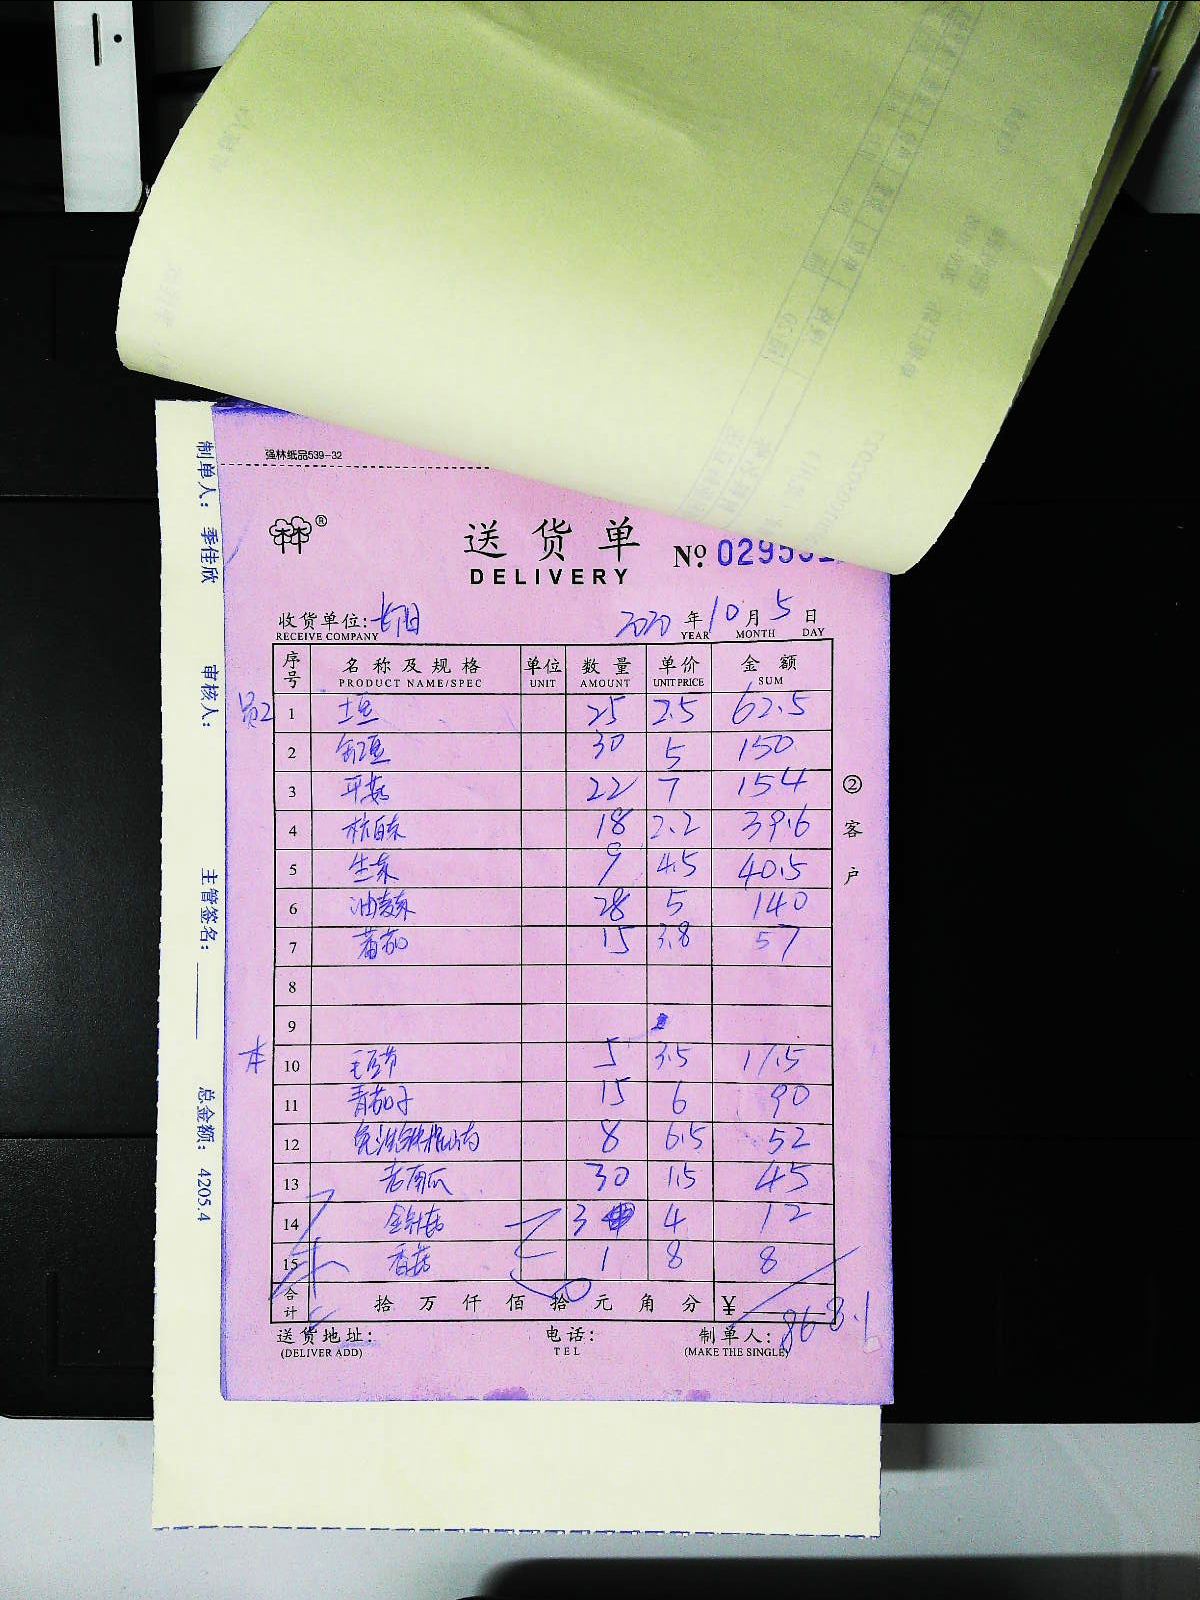 强林纸品539-32
送货单
DELIVERY
№
收货单位: 长阳 2020 年 10 月 5 日
RECEIVE COMPANY YEAR MONTH DAY
序号 名称及规格 单位 数量 单价 金额
PRODUCT NAME/SPEC UNIT AMOUNT UNIT PRICE SUM
1 土豆 25 2.5 62.5
2 30 5 150
3 平菇 22 7 154
4 杭白菜 18 2.2 39.6
5 生菜 9 4.5 40.5
6 油麦菜 28 5 140
7 蕃茄 15 3.8 57
8
9
本 10 毛豆节 5 3.5 17.5
11 青茄子 15 6 90
12 8 6.5 52
13 老南瓜 30 1.5 45
14 金针菇 3 4 12
15 香菇 1 8 8
合计 拾万仟佰拾元角分 ¥ 868.1
送货地址: 电话: 制单人:
(DELIVER ADD) TEL (MAKE THE SINGLE)
②客户
制单人: 季佳欣 审核人: 主管签名: 总金额: 4205.4